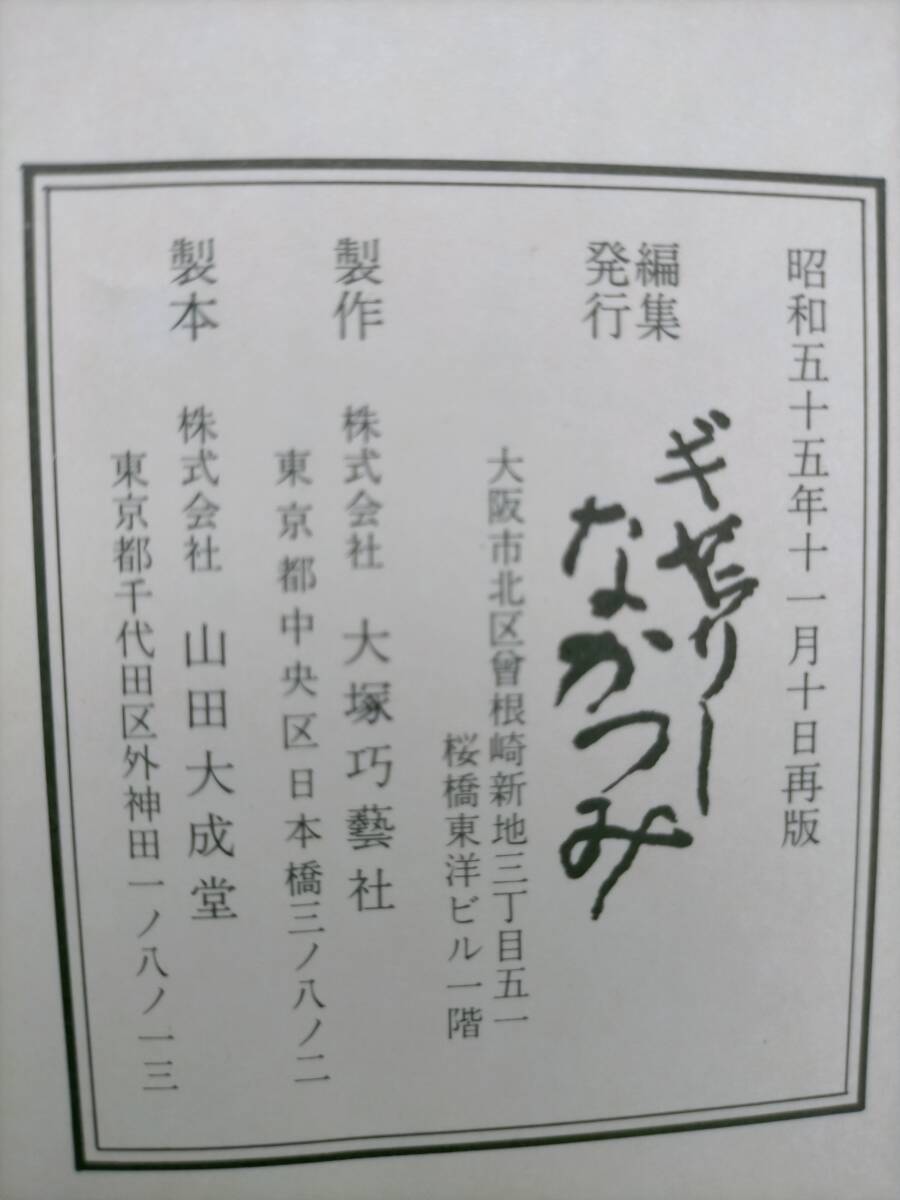 昭和五十五年十一月十日再版
編集
発行
ギャラリー
なかつみ
大阪市北区曾根崎新地三丁目五一
桜橋東洋ビル一階
製作
株式会社 大塚巧藝社
東京都中央区日本橋三ノ八ノ二
製本
株式会社 山田大成堂
東京都千代田区外神田一ノ八ノ一三